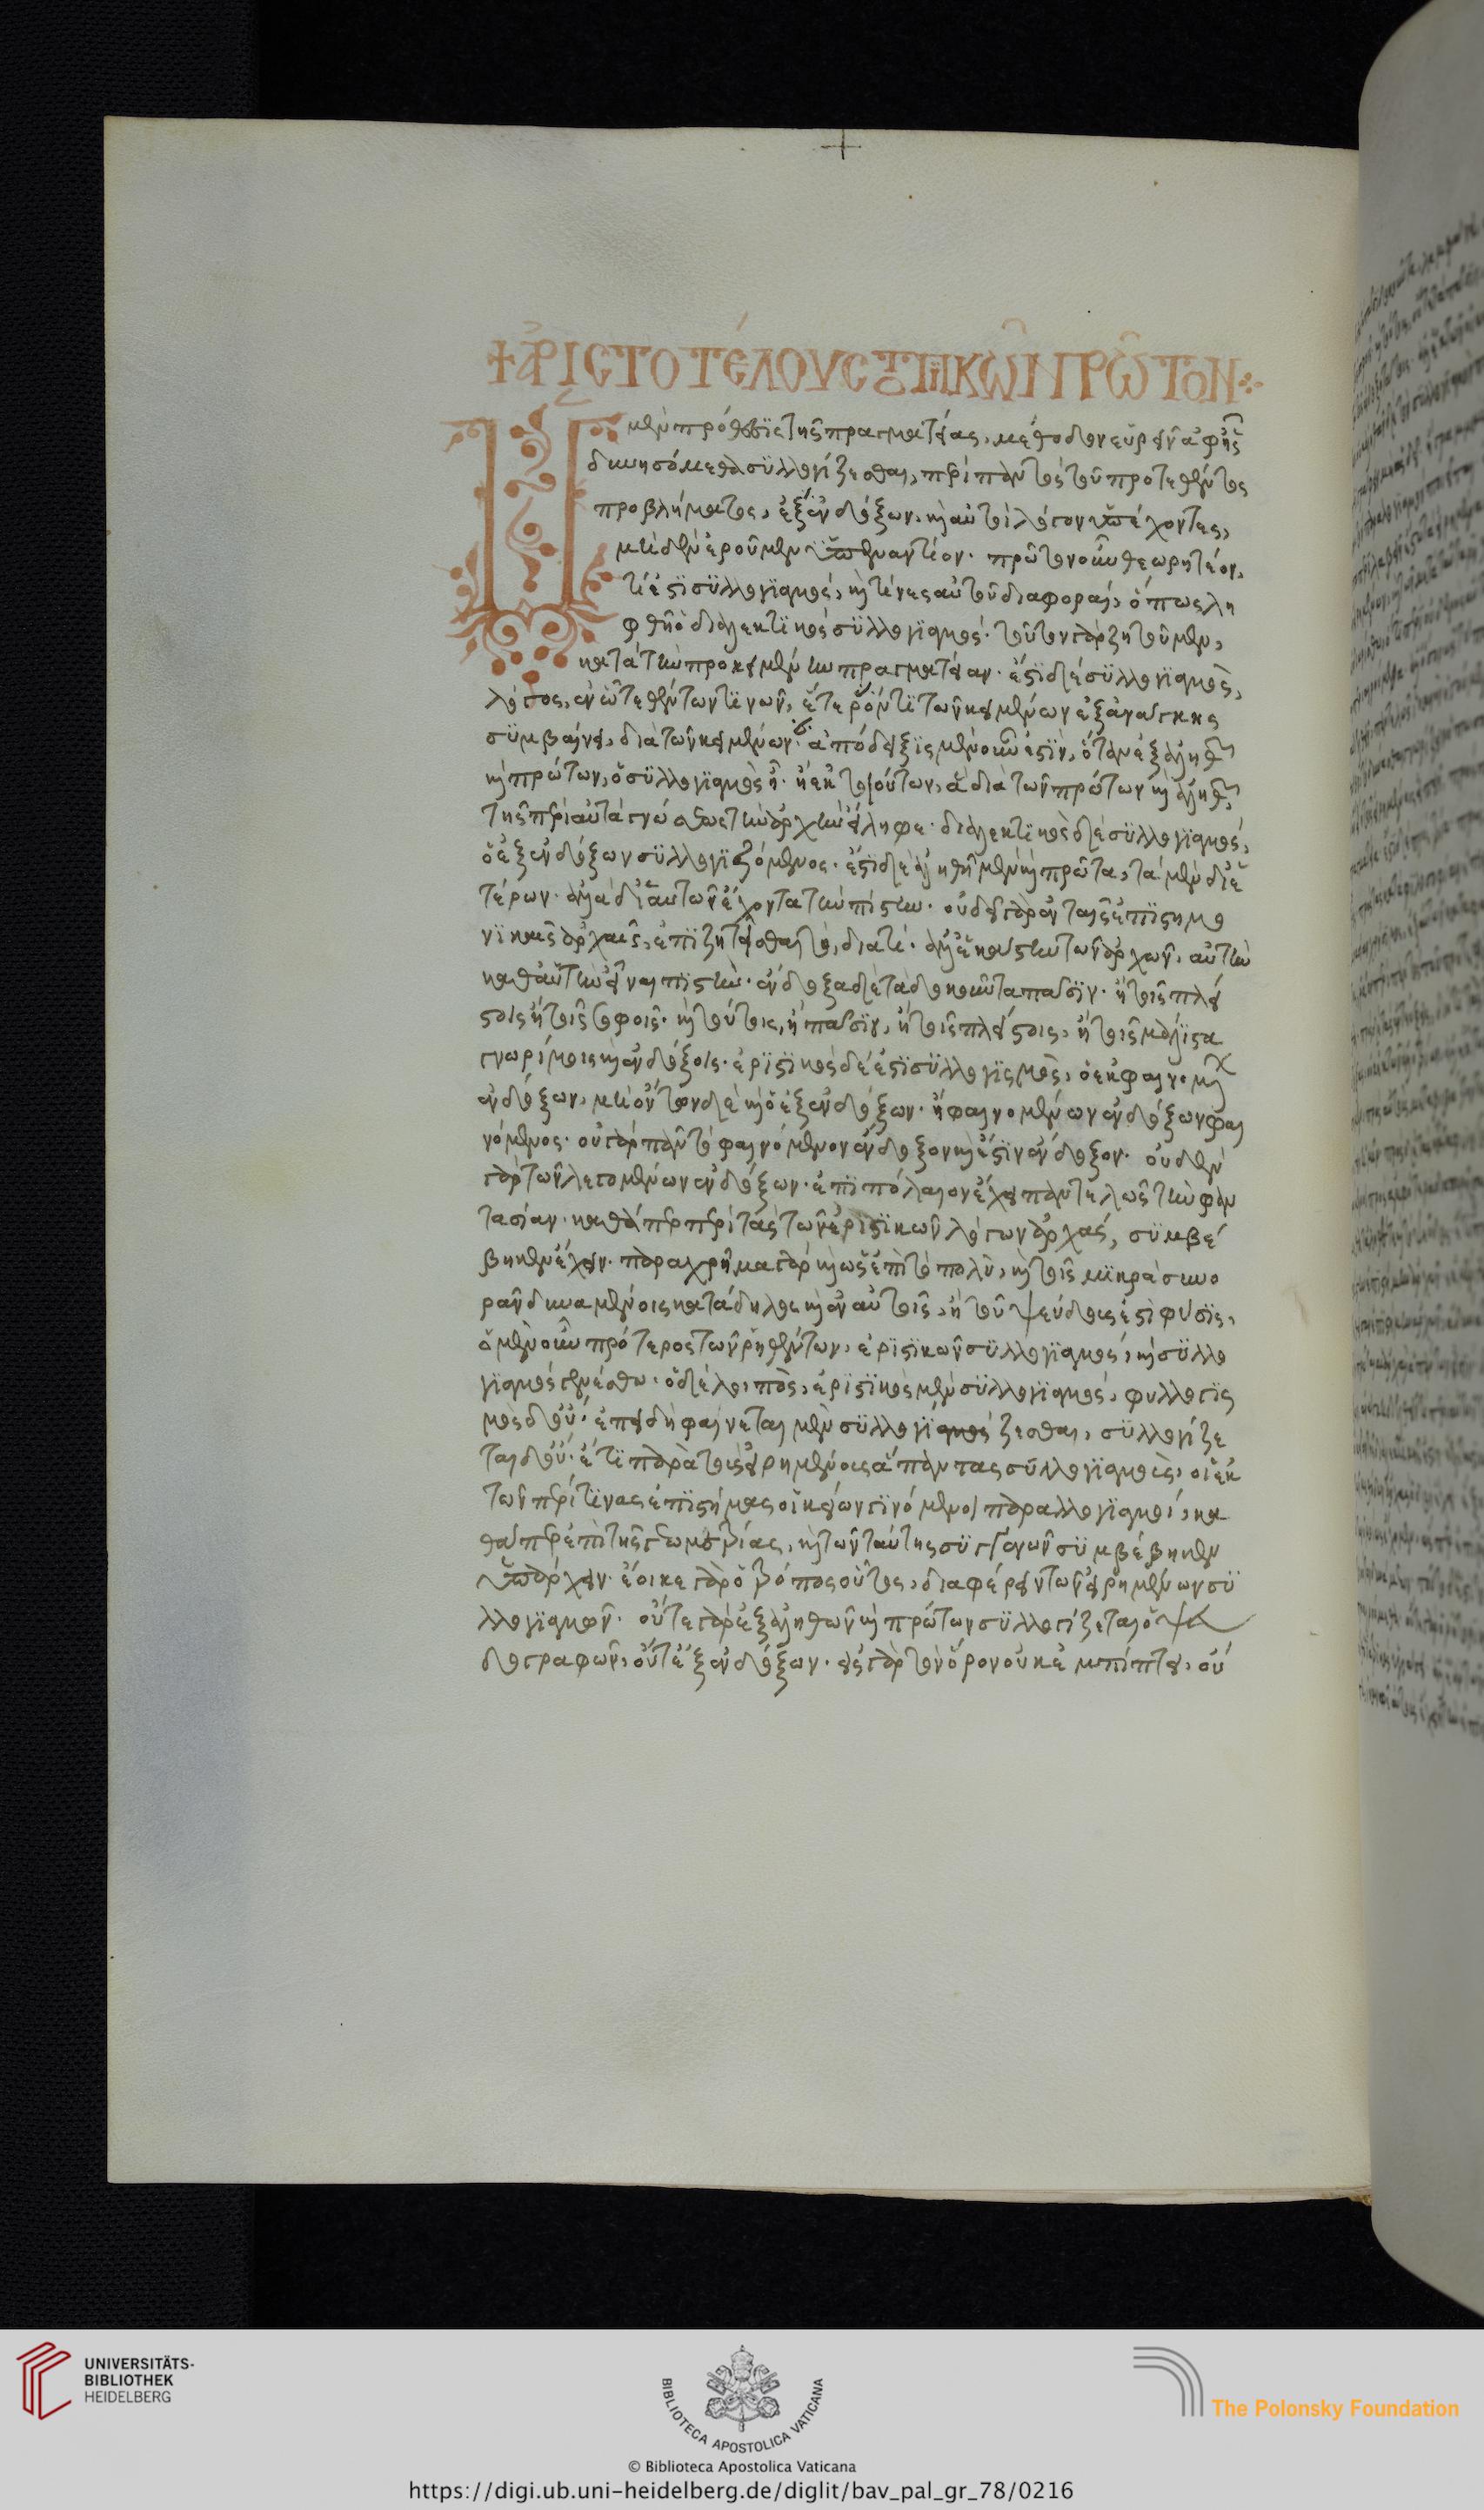 + ἈΡΙΣΤΟΤΕΛΟΥΣ ΤΟΠΙΚΩΝ ΠΡΩΤΟΝ
Ἡ μὲν πρόθεσις τῆς πραγματείας, μέθοδον εὑρεῖν ἀφ' ἧς
δυνησόμεθα συλλογίζεσθαι, περὶ παντὸς τοῦ προτεθέντος
προβλήματος, ἐξ ἐνδόξων, καὶ αὐτοὶ λόγον ὑπέχοντες,
μηδὲν ἐροῦμεν ὑπεναντίον. πρῶτον οὖν θεωρητέον,
τί ἐστι συλλογισμός, καὶ τίνες αὐτοῦ διαφοραί, ὅπως λη
φθῇ ὁ διαλεκτικὸς συλλογισμός. τοῦτον γὰρ ζητοῦμεν,
κατὰ τὴν προκειμένην πραγματείαν. ἔστι δὲ συλλογισμὸς,
λόγος, ἐν ᾧ τεθέντων τινῶν, ἕτερόν τι τῶν κειμένων ἐξ ἀνάγκης
συμβαίνει, διὰ τῶν κειμένων. ἀπόδειξις μὲν οὖν ἐστιν, ὅταν ἐξ ἀληθῶν
καὶ πρώτων, ὁ συλλογισμὸς ᾖ. ἢ ἐκ τοιούτων, ἃ διὰ τῶν πρώτων καὶ ἀληθῶν
τῆς περὶ αὐτὰ γνώσεως τὴν ἀρχὴν εἴληφε. διαλεκτικὸς δὲ συλλογισμός,
ὁ ἐξ ἐνδόξων συλλογιζόμενος. ἔστι δὲ ἀληθῆ μὲν καὶ πρῶτα, τὰ μὴ δι' ἑ
τέρων. ἀλλὰ δι' αὑτῶν ἔχοντα τὴν πίστιν. οὐ δεῖ γὰρ ἐν ταῖς ἐπιστημο
νικαῖς ἀρχαῖς, ἐπιζητεῖσθαι τὸ, διατί. ἀλλ' ἑκάστην τῶν ἀρχῶν, αὐτὴν
καθ' αὑτὴν εἶναι πιστὴν. ἔνδοξα δὲ τὰ δοκοῦντα πᾶσιν. ἢ τοῖς πλεί
στοις ἢ τοῖς σοφοῖς. καὶ τούτοις, ἢ πᾶσιν, ἢ τοῖς πλείστοις, ἢ τοῖς μάλιστα
γνωρίμοις καὶ ἐνδόξοις. ἐριστικὸς δέ ἐστι συλλογισμὸς, ὁ ἐκ φαινομένων
ἐνδόξων, μὴ ὄντων δὲ καὶ ὁ ἐξ ἐνδόξων. ἢ φαινομένων ἐνδόξων φαι
νόμενος. οὐ γὰρ πᾶν τὸ φαινόμενον ἔνδοξον καὶ ἔστιν ἔνδοξον. οὐδὲν
γὰρ τῶν λεγομένων ἐνδόξων. ἐπιπόλαιον ἔχει παντελῶς τὴν φαν
τασίαν. καθάπερ περὶ τὰς τῶν ἐριστικῶν λόγων ἀρχάς, συμβέ
βηκεν ἔχειν. παραχρῆμα γὰρ καὶ ὡς ἐπὶ τὸ πολὺ, καὶ τοῖς μικρὰ συνο
ρᾶν δυναμένοις κατάδηλος καὶ ἐν αὐτοῖς, ἡ τοῦ ψεύδους ἐστὶ φύσις,
ὁ μὲν οὖν πρότερος τῶν ῥηθέντων, ἐριστικῶν συλλογισμός, καὶ συλλο
γισμός λεγέσθω. ὁ δὲ λοιπὸς, ἐριστικὸς μὲν συλλογισμός, συλλογισ
μὸς δ' οὔ. ἐπειδὴ φαίνεται μὲν συλλογίζεσθαι, συλλογίζε
ται δ' οὔ. ἔτι παρὰ τοὺς εἰρημένους ἅπαντας συλλογισμοὺς, οἱ ἐκ
τῶν περί τινας ἐπιστήμας οἰκείων γινόμενοι παραλογισμοί, κα
θάπερ ἐπὶ τῆς γεωμετρίας, καὶ τῶν ταύτης συγγενῶν συμβέβηκεν
ὑπάρχειν. ἔοικε γὰρ ὁ τρόπος οὗτος, διαφέρειν τῶν εἰρημένων συ
λλογισμῶν. οὔτε γὰρ ἐξ ἀληθῶν καὶ πρώτων συλλογίζεται ὁ ψευ
δογραφῶν, οὔτ' ἐξ ἐνδόξων. εἰς γὰρ τὸν ὅρον οὐκ ἐμπίπτει, οὐ
UNIVERSITÄTS-
BIBLIOTHEK
HEIDELBERG
BIBLIOTECA APOSTOLICA VATICANA
© Biblioteca Apostolica Vaticana
The Polonsky Foundation
https://digi.ub.uni-heidelberg.de/diglit/bav_pal_gr_78/0216